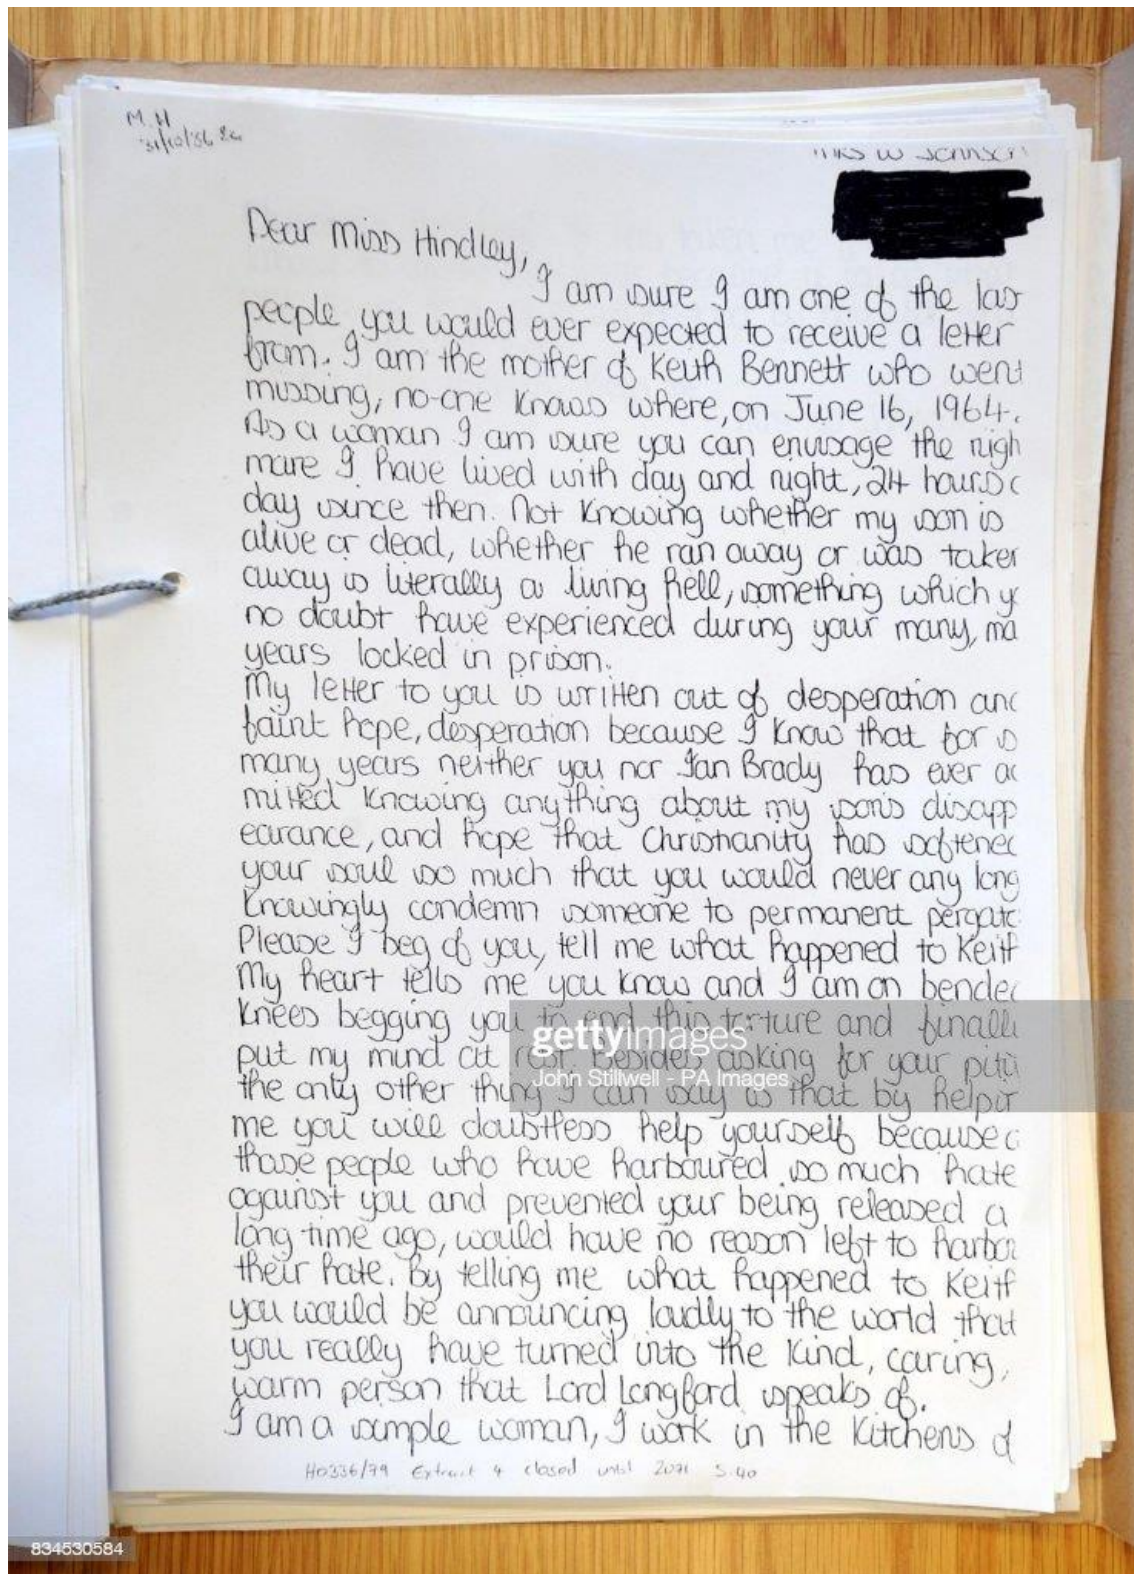 M.H
31/10/86
Mrs W Johnson
Dear Miss Hindley,
I am sure I am one of the las
people you would ever expected to receive a letter
from. I am the mother of Keith Bennett who went
missing, no-one knows where, on June 16, 1964.
As a woman I am sure you can envisage the nigh
mare I have lived with day and night, 24 hours
day since then. Not knowing whether my son is
alive or dead, whether he ran away or was taken
away is literally a living hell, something which y
no doubt have experienced during your many, ma
years locked in prison.
My letter to you is written out of desperation and
faint hope, desperation because I know that for s
many years neither you nor Ian Brady has ever a
mitted knowing anything about my son's disapp
earance, and hope that Christianity has softened
your soul so much that you would never any long
knowingly condemn someone to permanent pergato
Please I beg of you, tell me what happened to Keith
My heart tells me you know and I am on bended
knees begging you to end this torture and finall
put my mind at rest. Besides asking for your pity
the only other thing I can say is that by helpin
me you will doubtless help yourself because
those people who have harboured so much hate
against you and prevented your being released a
long time ago, would have no reason left to harbo
their hate. By telling me what happened to Keith
you would be announcing loudly to the world that
you really have turned into the kind, caring,
warm person that Lord Longford speaks of.
I am a simple woman, I work in the kitchens of
HO336/79 Extract 4 closed until 2071 S.40
gettyimages
John Stillwell - PA Images
834530584